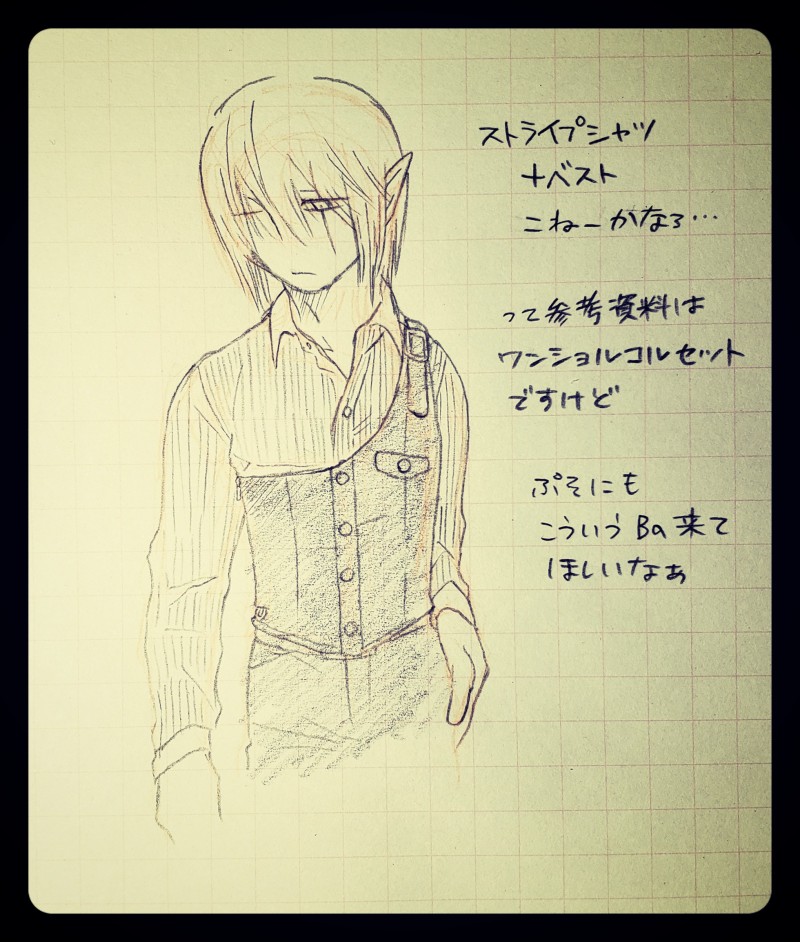 ストライプシャツ
+ベスト
こねーかなぁ…
って参考資料は
ワンショルコルセット
ですけど
ぷそにも
こういうBa来て
ほしいなぁ